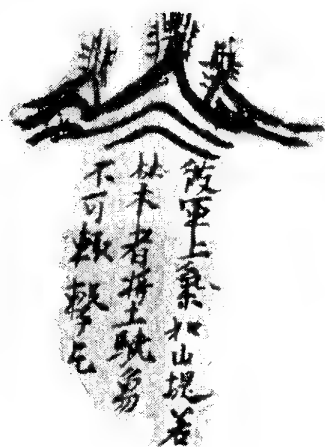 敵軍上氣如山堤若
林木者將士驍勇
不可輕擊之